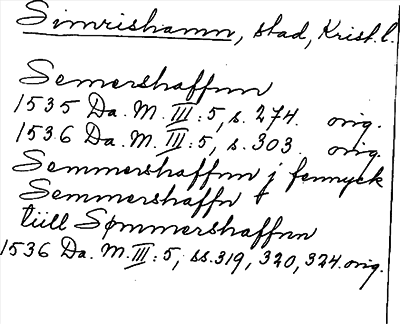 Simrishamn, stad, Krist. l.
Semershaffnn
1535 Da. M. III: 5, s. 274. orig.
1536 Da. M. III: 5, s. 303. orig.
Semmershaffnn j fennyck
Semmershaffn
tüll Sømmershaffnn
1536 Da. M. III: 5, ss. 319, 320, 324. orig.